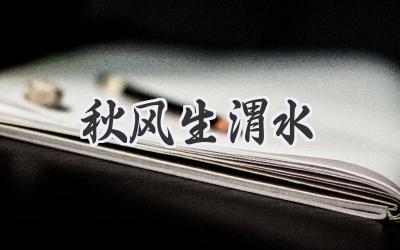 秋风生渭水